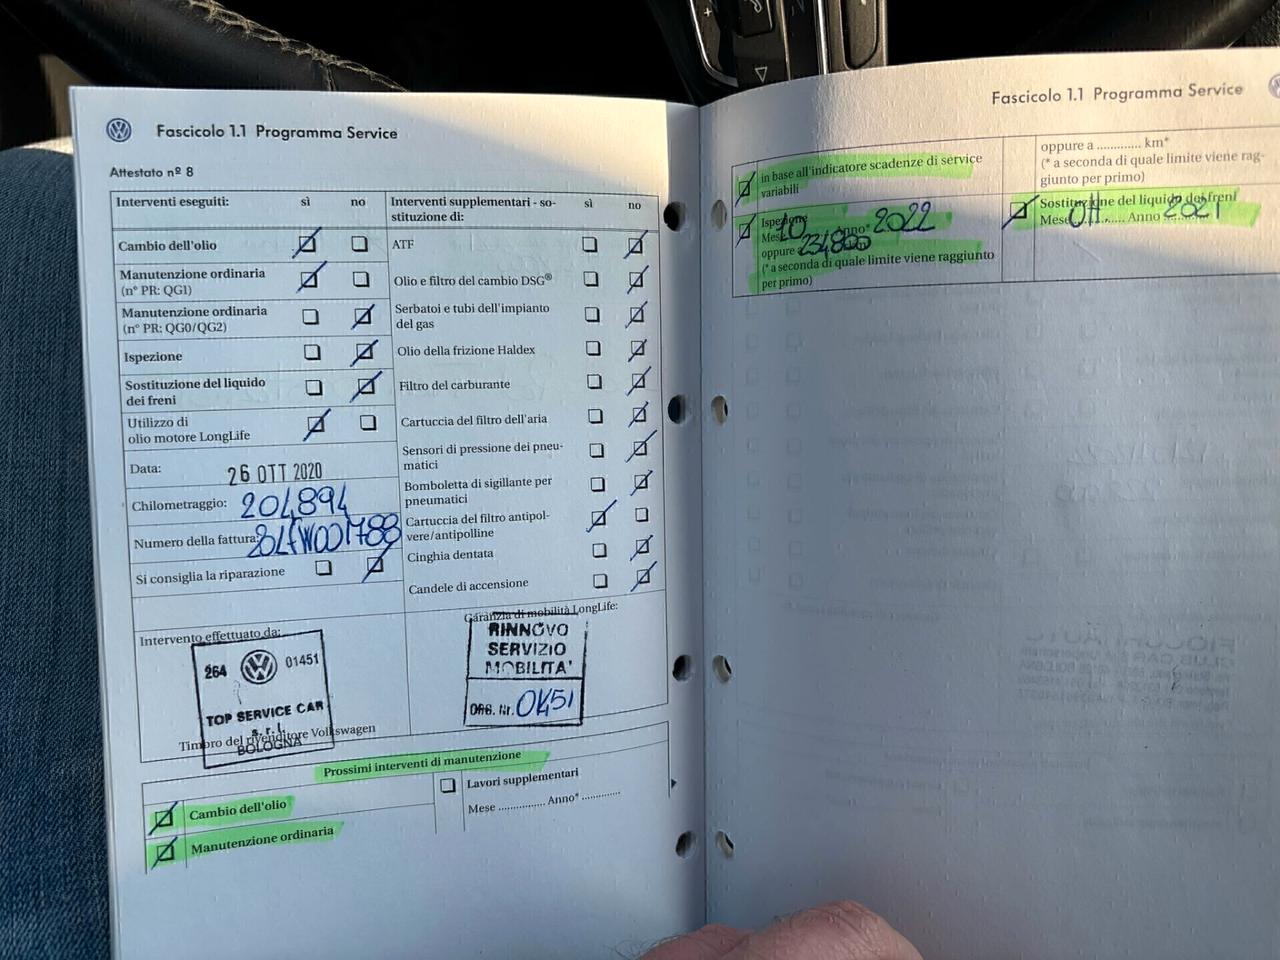 Fascicolo 1.1 Programma Service
Attestato nº 8
Interventi eseguiti: sì no
Cambio dell'olio
Manutenzione ordinaria
(nº PR: QG1)
Manutenzione ordinaria
(nº PR: QG0/QG2)
Ispezione
Sostituzione del liquido
dei freni
Utilizzo di
olio motore LongLife
Data: 26 OTT 2020
Chilometraggio: 204894
Numero della fattura:
Si consiglia la riparazione
Interventi supplementari - so-
stituzione di: sì no
ATF
Olio e filtro del cambio DSG®
Serbatoi e tubi dell'impianto
del gas
Olio della frizione Haldex
Filtro del carburante
Cartuccia del filtro dell'aria
Sensori di pressione dei pneu-
matici
Bomboletta di sigillante per
pneumatici
Cartuccia del filtro antipol-
vere/antipolline
Cinghia dentata
Candele di accensione
Intervento effettuato da:
264 01451
TOP SERVICE CAR
s.r.l.
Timbro del rivenditore Volkswagen
BOLOGNA
Garanzia di mobilità LongLife:
RINNOVO
SERVIZIO
MOBILITA'
ORG. Nr. 01451
Prossimi interventi di manutenzione
Cambio dell'olio
Manutenzione ordinaria
Lavori supplementari
Mese ................ Anno* .............
Fascicolo 1.1 Programma Service
in base all'indicatore scadenze di service
variabili
Ispezione
Mese 10 Anno* 2022
oppure a 234800
(* a seconda di quale limite viene raggiunto
per primo)
oppure a ............. km*
(* a seconda di quale limite viene rag-
giunto per primo)
Sostituzione del liquido dei freni
Mese Ott Anno 2021